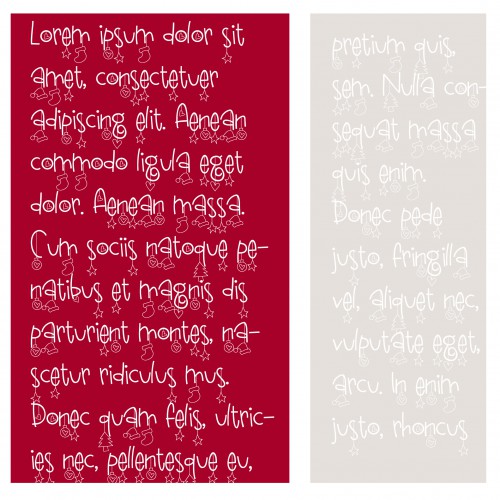 Lorem ipsum dolor sit
amet, consectetuer
adipiscing elit. Aenean
commodo ligula eget
dolor. Aenean massa.
Cum sociis natoque pe-
natibus et magnis dis
parturient montes, na-
scetur ridiculus mus.
Donec quam felis, ultric-
ies nec, pellentesque eu,
pretium quis,
sem. Nulla con-
sequat massa
quis enim.
Donec pede
justo, fringilla
vel, aliquet nec,
vulputate eget,
arcu. In enim
justo, rhoncus